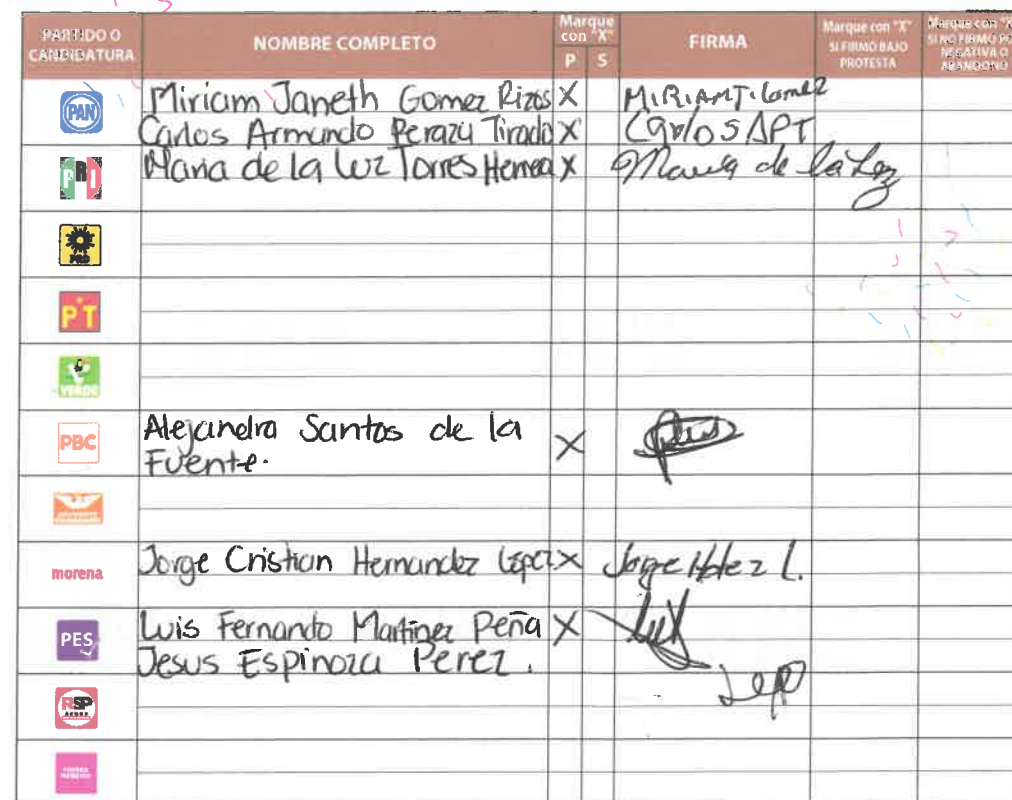 PARTIDO O CANDIDATURA NOMBRE COMPLETO Marque con "X" P S FIRMA Marque con "X" SI FIRMÓ BAJO PROTESTA Marque con "X" SI NO FIRMÓ PO NEGATIVA O ABANDONO
PAN Miriam Janeth Gomez Rizos X MIRIAM J. Gomez
Carlos Armando Perazu Tirado X CarlosAPT
PRI Maria de la Luz Torres Herrera X Maria de la Luz
PRD
PT
VERDE
PBC Alejandra Santos de la X
Fuente.
morena Jorge Cristian Hernandez López X Jorge Hdez L.
PES Luis Fernando Martinez Peña X
Jesus Espinoza Perez.
RSP